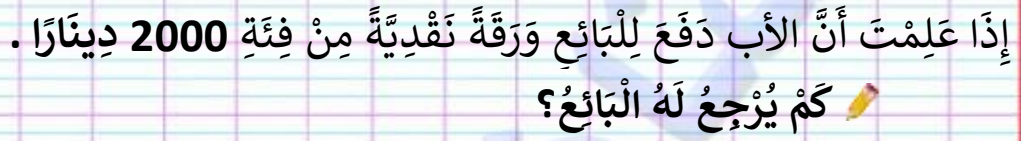 إِذَا عَلِمْتَ أَنَّ الأب دَفَعَ لِلْبَائِعِ وَرَقَةً نَقْدِيَّةً مِنْ فِئَةِ 2000 دِينَارًا .
كَمْ يُرْجِعُ لَهُ الْبَائِعُ؟